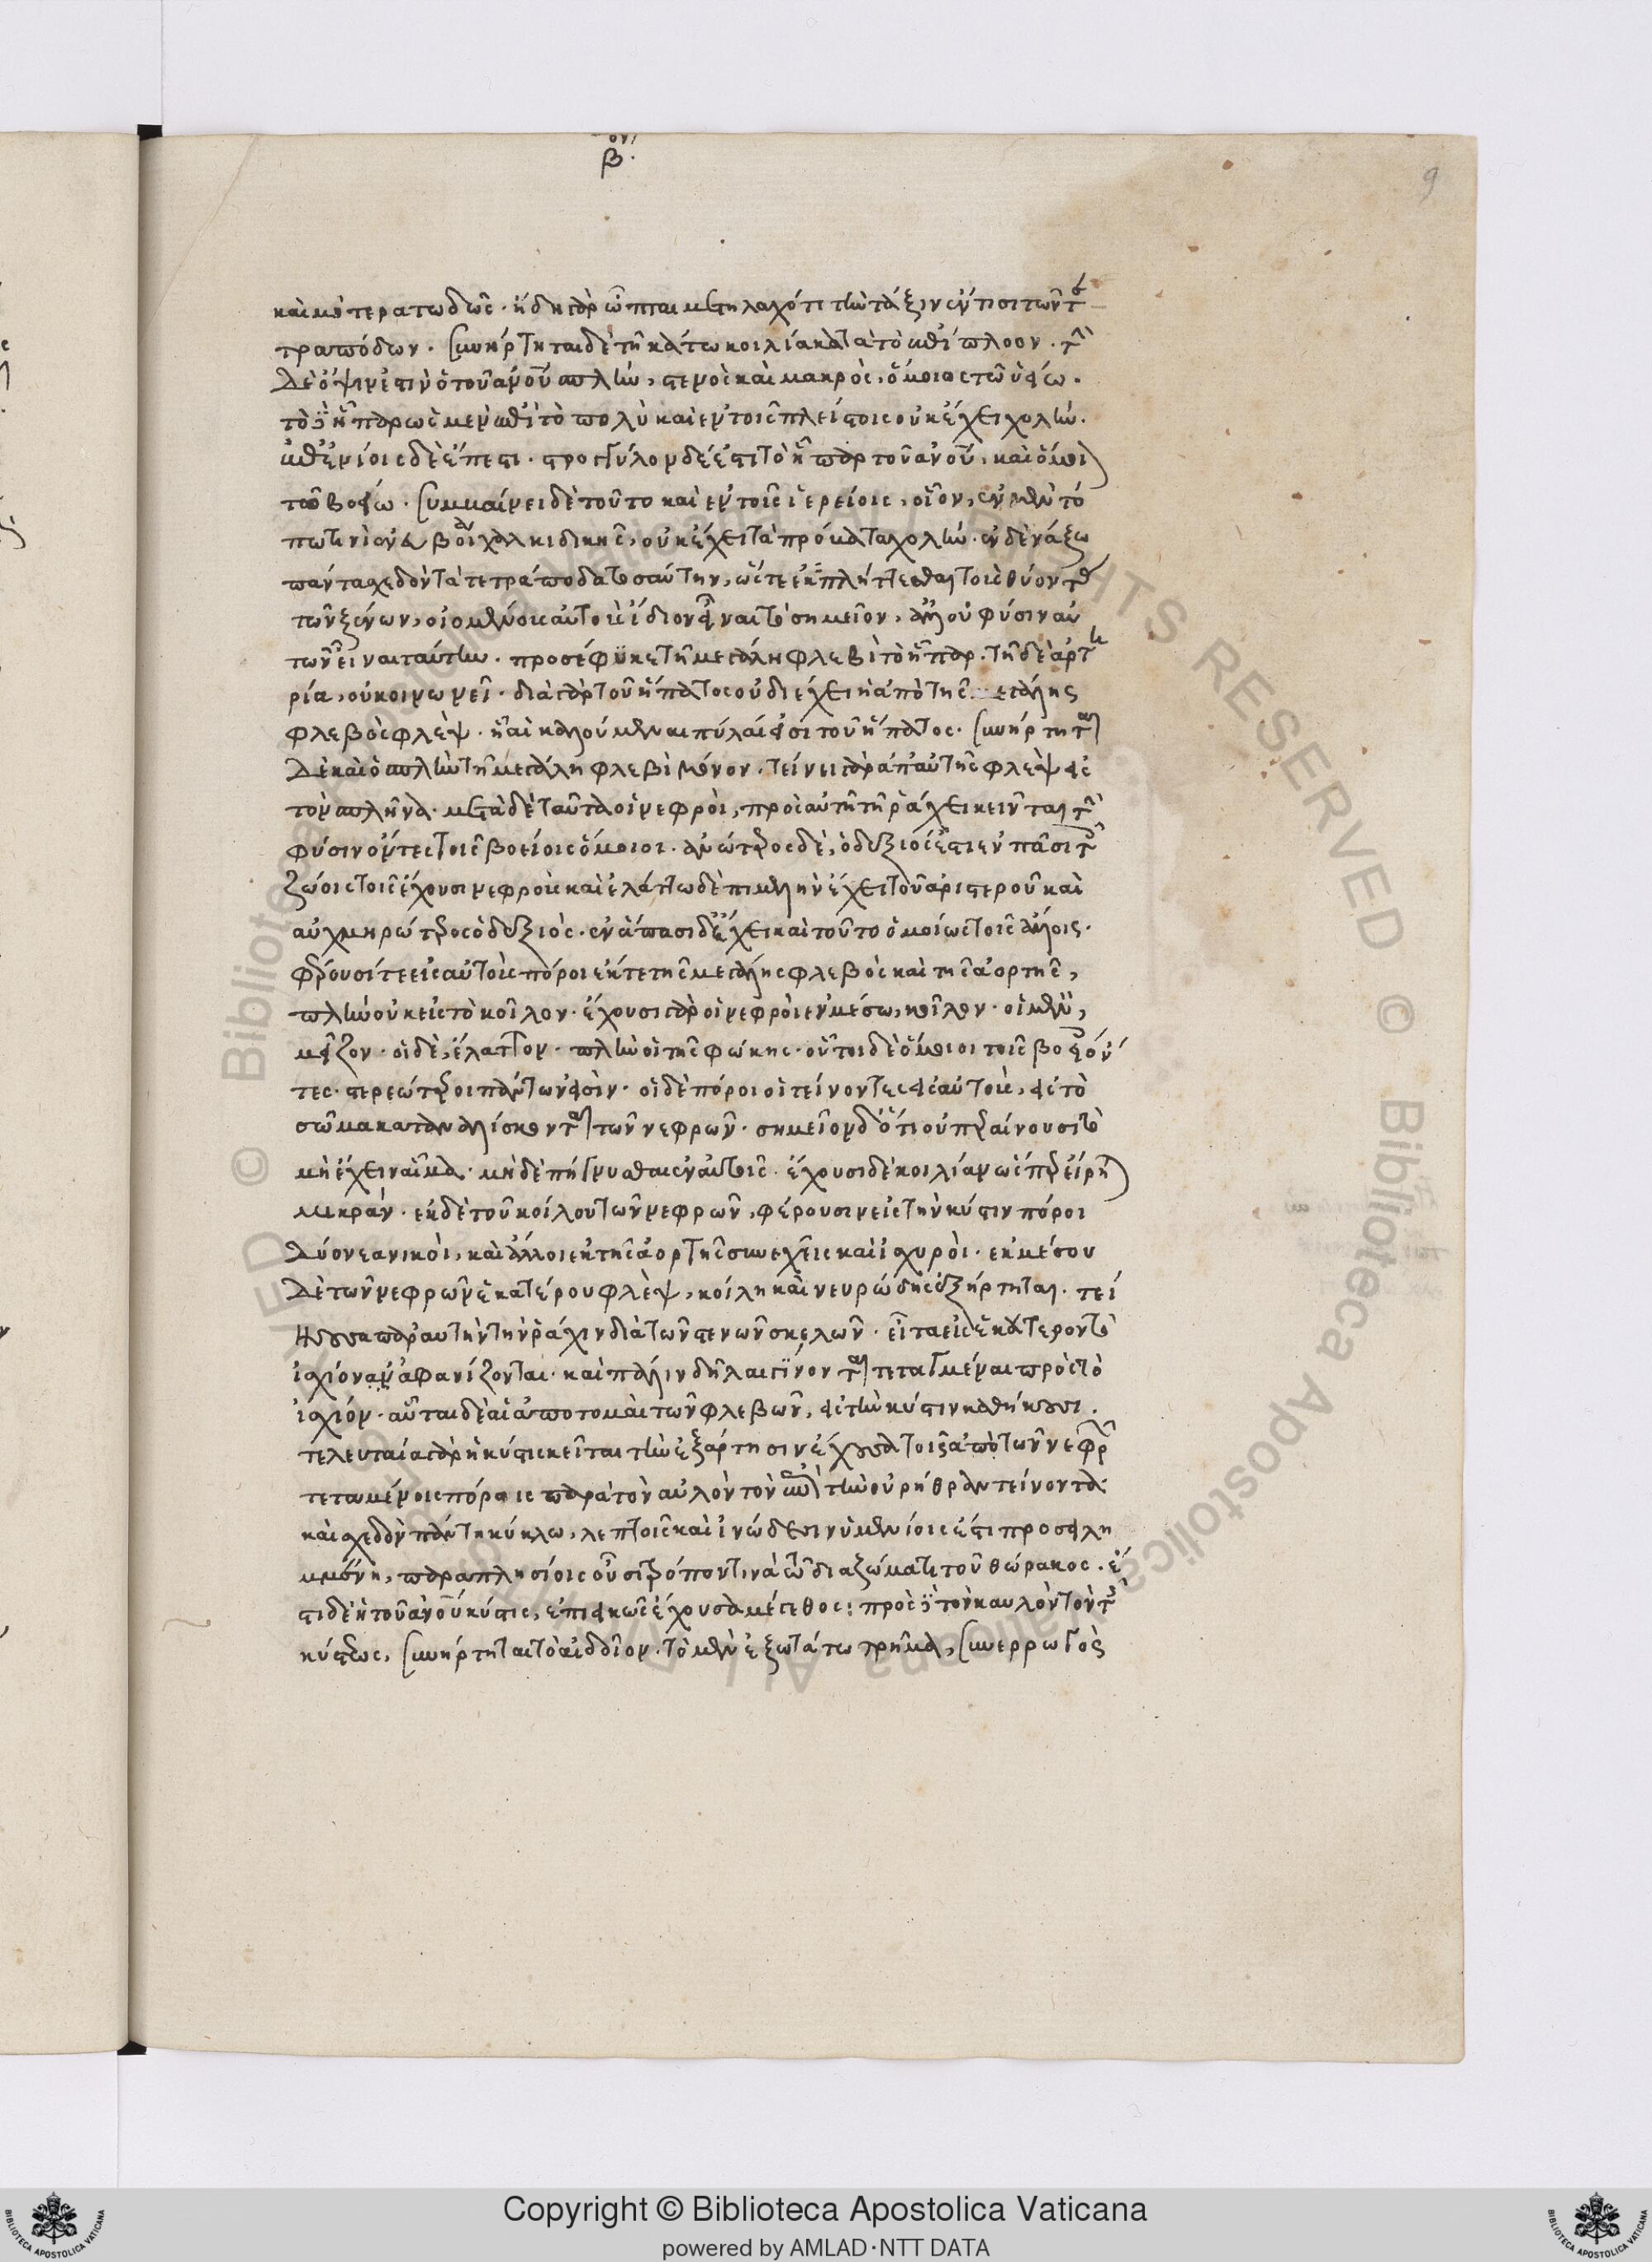 β^ον.
9
καὶ μὴ τερατωδῶς· ἤδη γὰρ ὦπται μετηλλαχότι τὴν τάξιν ἐν τισι τῶν τε
τραπόδων. συνήρτηται δὲ τῇ κάτω κοιλίᾳ κατὰ τὸ ἐπίπλοον. τὴν
δὲ ὄψιν ἐστὶν ὁ τοῦ ἀνοῦ σπλὴν, στενὸς καὶ μακρὸς, ὅμοιος τῷ ὑείῳ.
τὸ δὲ ἧπαρ ὡς μὲν ἐπὶ τὸ πολὺ καὶ ἐν τοῖς πλείστοις οὐκ ἔχει χολήν.
ἐπ' ἐνίοις δὲ ἔπεστι. στρογγύλον δέ ἐστι τὸ ἧπαρ τοῦ ἀνοῦ, καὶ ὅμοι
τῷ βοείῳ. συμβαίνει δὲ τοῦτο καὶ ἐν τοῖς ἱερείοις, οἷον, ἐν μὲν τό
πῳ τινὶ ἐν εὐβοίᾳ χαλκιδικῆς, οὐκ ἔχει τὰ πρόβατα χολήν. ἐν δὲ νάξῳ
πάντα σχεδὸν τὰ τετράποδα τοσαύτην, ὥστε ἐκπλήττεσθαι τοὺς θύοντας
τῶν ξένων, οἰομένους αὐτοῖς ἴδιον εἶναι τὸ σημεῖον, ἀλλ' οὐ φύσιν αὐ
τῶν εἶναι ταύτην. προσπέφυκε τῇ μεγάλῃ φλεβὶ τὸ ἧπαρ. τῇ δὲ ἀρτη
ρίᾳ, οὐ κοινωνεῖ. διὰ γὰρ τοῦ ἥπατος οὐ διέχει ἡ ἀπὸ τῆς μεγάλης
φλεβὸς φλέψ. ᾗ αἱ καλούμεναι πύλαί εἰσι τοῦ ἥπατος. συνήρτηται
δὲ καὶ ὁ σπλὴν τῇ μεγάλῃ φλεβὶ μόνον. τείνει γὰρ ἀπ' αὐτῆς φλὲψ εἰς
τὸν σπλῆνα. μετὰ δὲ ταῦτα οἱ νεφροὶ, πρὸς αὐτῇ τῇ ῥάχει κεῖνται τὴν
φύσιν ὄντες τοῖς βοείοις ὅμοιοι. ἀνώτερος δὲ, ὁ δεξιός ἐστιν ἐν πᾶσι τοῖς
ζῴοις τοῖς ἔχουσι νεφροὺς καὶ ἐλάττω δὲ πιμελὴν ἔχει τοῦ ἀριστεροῦ καὶ
αὐχμηρότερος ὁ δεξιὸς. ἐν ἅπασι δ' ἔχει καὶ τοῦτο ὁμοίως τοῖς ἄλλοις.
φέρουσί τε εἰς αὐτοὺς πόροι ἔκ τε τῆς μεγάλης φλεβὸς καὶ τῆς ἀορτῆς,
πλὴν οὐκ εἰς τὸ κοῖλον. ἔχουσι γὰρ οἱ νεφροὶ ἐν μέσῳ, κοῖλον. οἱ μὲν,
μεῖζον. οἱ δὲ, ἔλαττον. πλὴν οἱ τῆς φώκης. οὗτοι δὲ ὅμοιοι τοῖς βοείοις ὄν
τες. στερεώτεροι πάντων εἰσὶν. οἱ δὲ πόροι οἱ τείνοντες εἰς αὐτοὺς, εἰς τὸ
σῶμα καταναλίσκονται τῶν νεφρῶν. σημεῖον δ' ὅτι οὐ περαίνουσι τὸ
μὴ ἔχειν αἷμα. μηδὲ πήγνυσθαι ἐν αὐτοῖς. ἔχουσι δὲ κοιλίαν ὥσπερ εἴρη
μικράν. ἐκ δὲ τοῦ κοίλου τῶν νεφρῶν, φέρουσιν εἰς τὴν κύστιν πόροι
δύο νεανικοὶ, καὶ ἄλλοι ἐκ τῆς ἀορτῆς συνεχεῖς καὶ ἰσχυροὶ. ἐκ μέσου
δὲ τῶν νεφρῶν ἑκατέρου φλὲψ, κοίλη καὶ νευρώδης ἐξήρτηται. τεί
νουσα παρ' αὐτὴν τὴν ῥάχιν διὰ τῶν στενῶν σκελῶν. εἶτα εἰς ἑκάτερον τὸ
ἰσχίον ἀφανίζονται. καὶ πάλιν δῆλαι γίνονται τεταγμέναι πρὸς τὸ
ἰσχίον. αὗται δὲ αἱ ἀποτομαὶ τῶν φλεβῶν, εἰς τὴν κύστιν καθήκουσι.
τελευταία γὰρ ἡ κύστις κεῖται τὴν ἐξάρτησιν ἔχουσα τοῖς ἀπὸ τῶν νεφρῶν
τεταμένοις πόροις παρὰ τὸν αὐλὸν τὸν ἐπὶ τὴν οὐρήθραν τείνοντα·
καὶ σχεδὸν πάντῃ κύκλῳ, λεπτοῖς καὶ ἰνώδεσιν ὑμενίοις ἐστι προσειλη
μμένη, παραπλησίοις οὖσι τρόπον τινὰ τῷ διαζώματι τοῦ θώρακος. ἔ
στι δὲ ἡ τοῦ ἀνοῦ κύστις, ἐπιεικῶς ἔχουσα μέγεθος: πρὸς δὲ τὸν καυλὸν τὸν τῆς
κύστεως, συνήρτηται τὸ αἰδοῖον. τὸ μὲν ἐξωτάτω τρῆμα, συνερρωγὸς
Copyright © Biblioteca Apostolica Vaticana
powered by AMLAD·NTT DATA